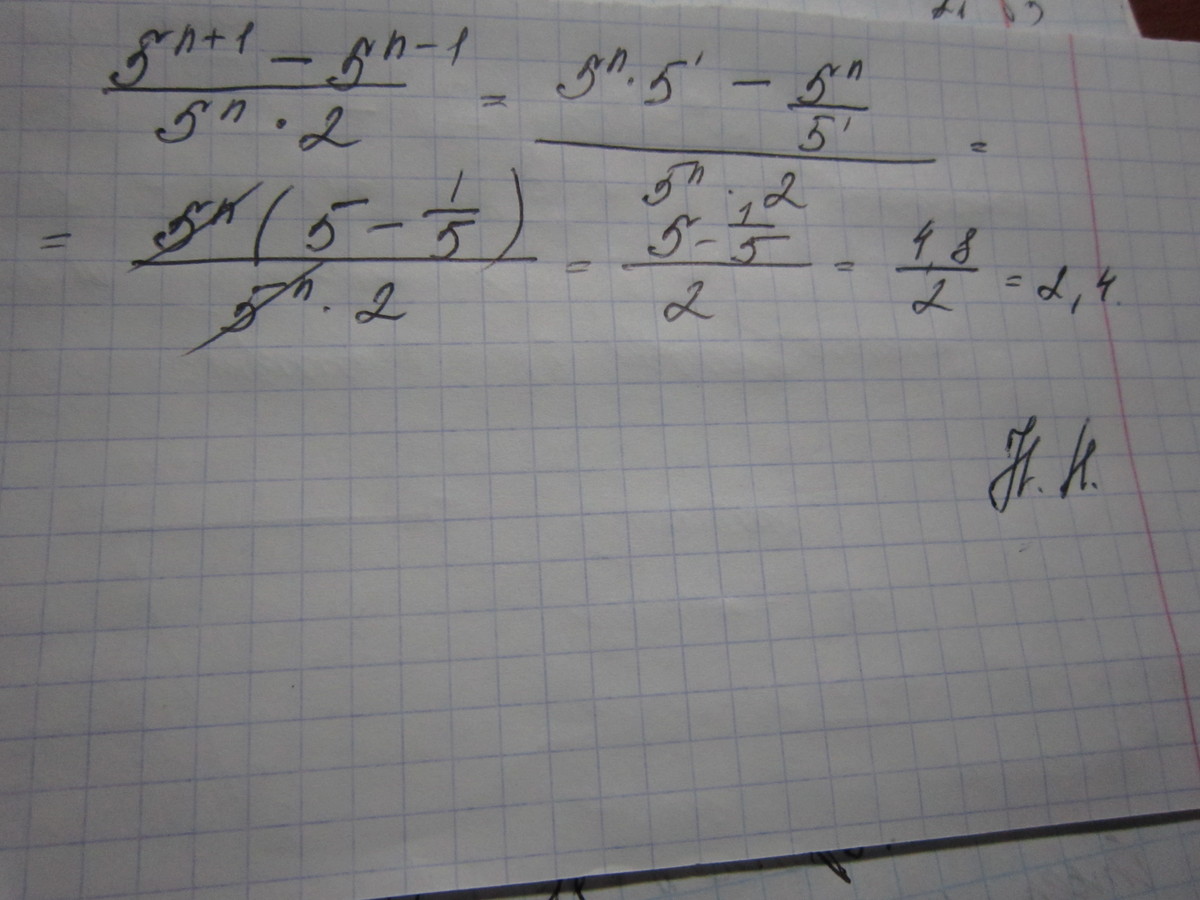 (5^(n+1) - 5^(n-1)) / (5^n · 2) = (5^n · 5^1 - 5^n/5^1) / (5^n · 2) =
= (5^n (5 - 1/5)) / (5^n · 2) = (5 - 1/5) / 2 = 4,8 / 2 = 2,4.